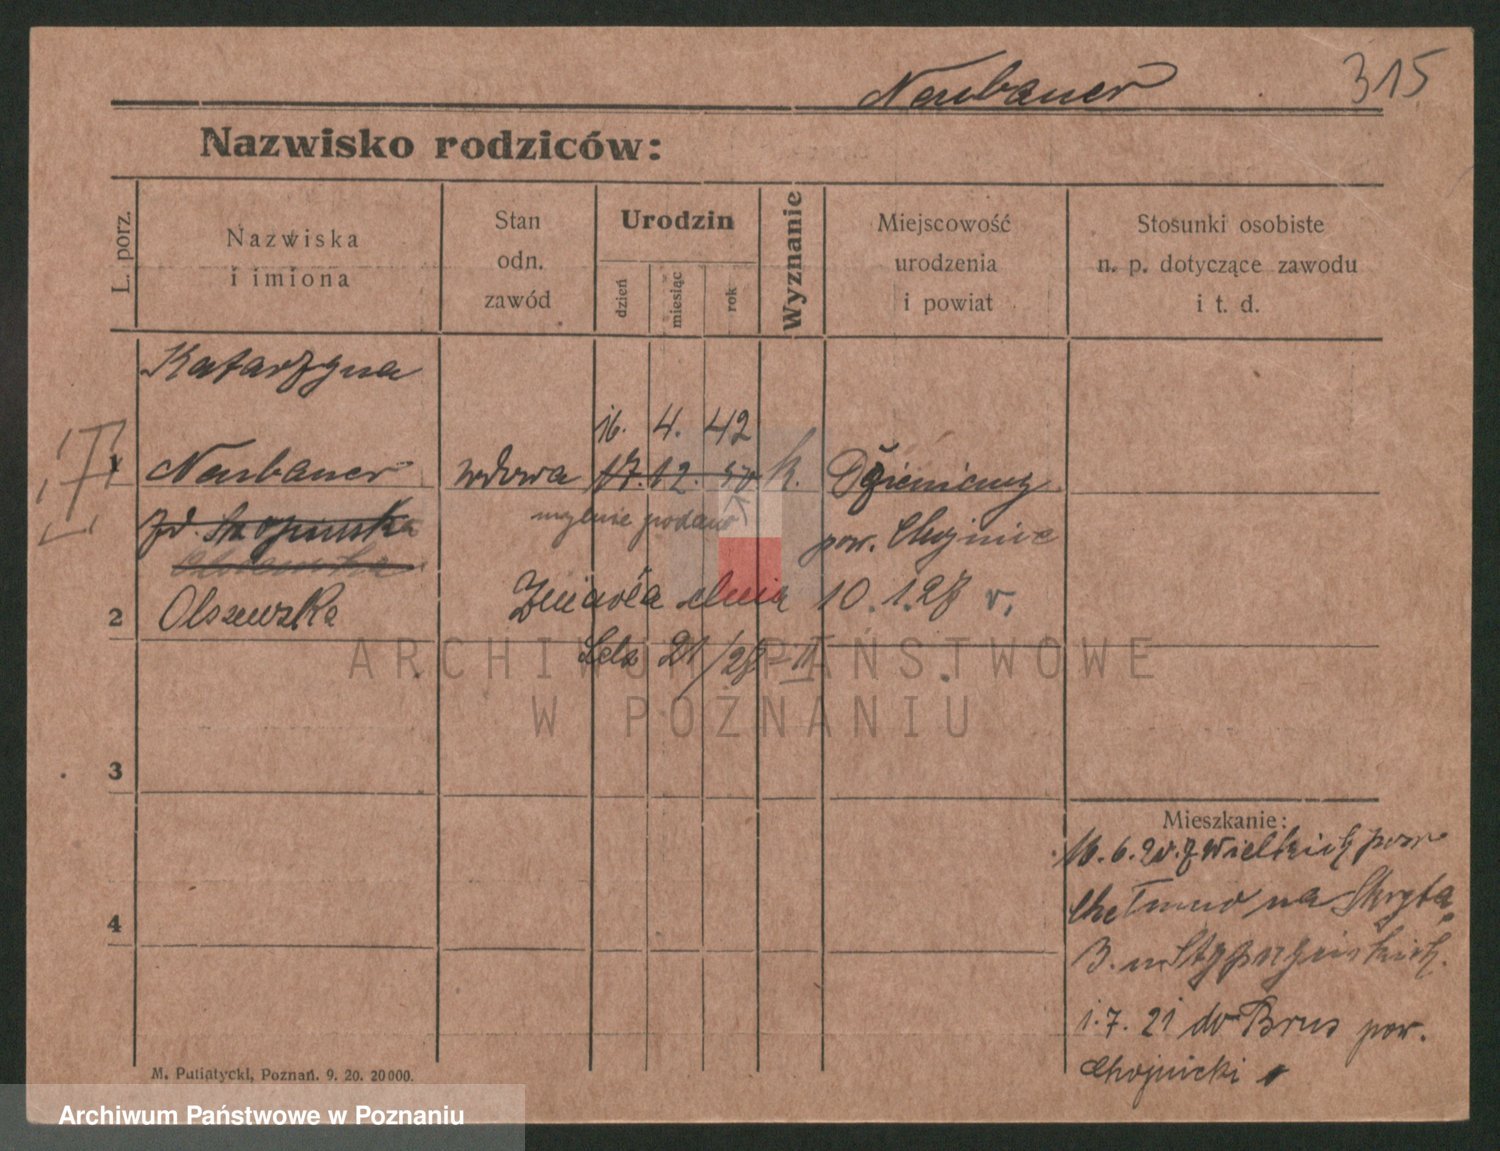 Neubauer
315
Nazwisko rodziców:
L. porz.
Nazwiska
i imiona
Stan
odn.
zawód
Urodzin
dzień
miesiąc
rok
Wyznanie
Miejscowość
urodzenia
i powiat
Stosunki osobiste
n. p. dotyczące zawodu
i t. d.
Katarzyna
16. 4. 42
1 Neubauer wdowa 17. 12. 50 k.
zd.
mylnie podano
pow. Chojnice
2 Olszewska
Zmarła dnia 10.1.27 r.
21/27
ARCHIWUM PAŃSTWOWE
W POZNANIU
3
4
Mieszkanie:
10.6.20. z Wielkich pow
Chełmno na Skryta
1.7.21 do Brus pow.
Chojnicki
M. Putiatycki, Poznań. 9. 20. 20000.
Archiwum Państwowe w Poznaniu